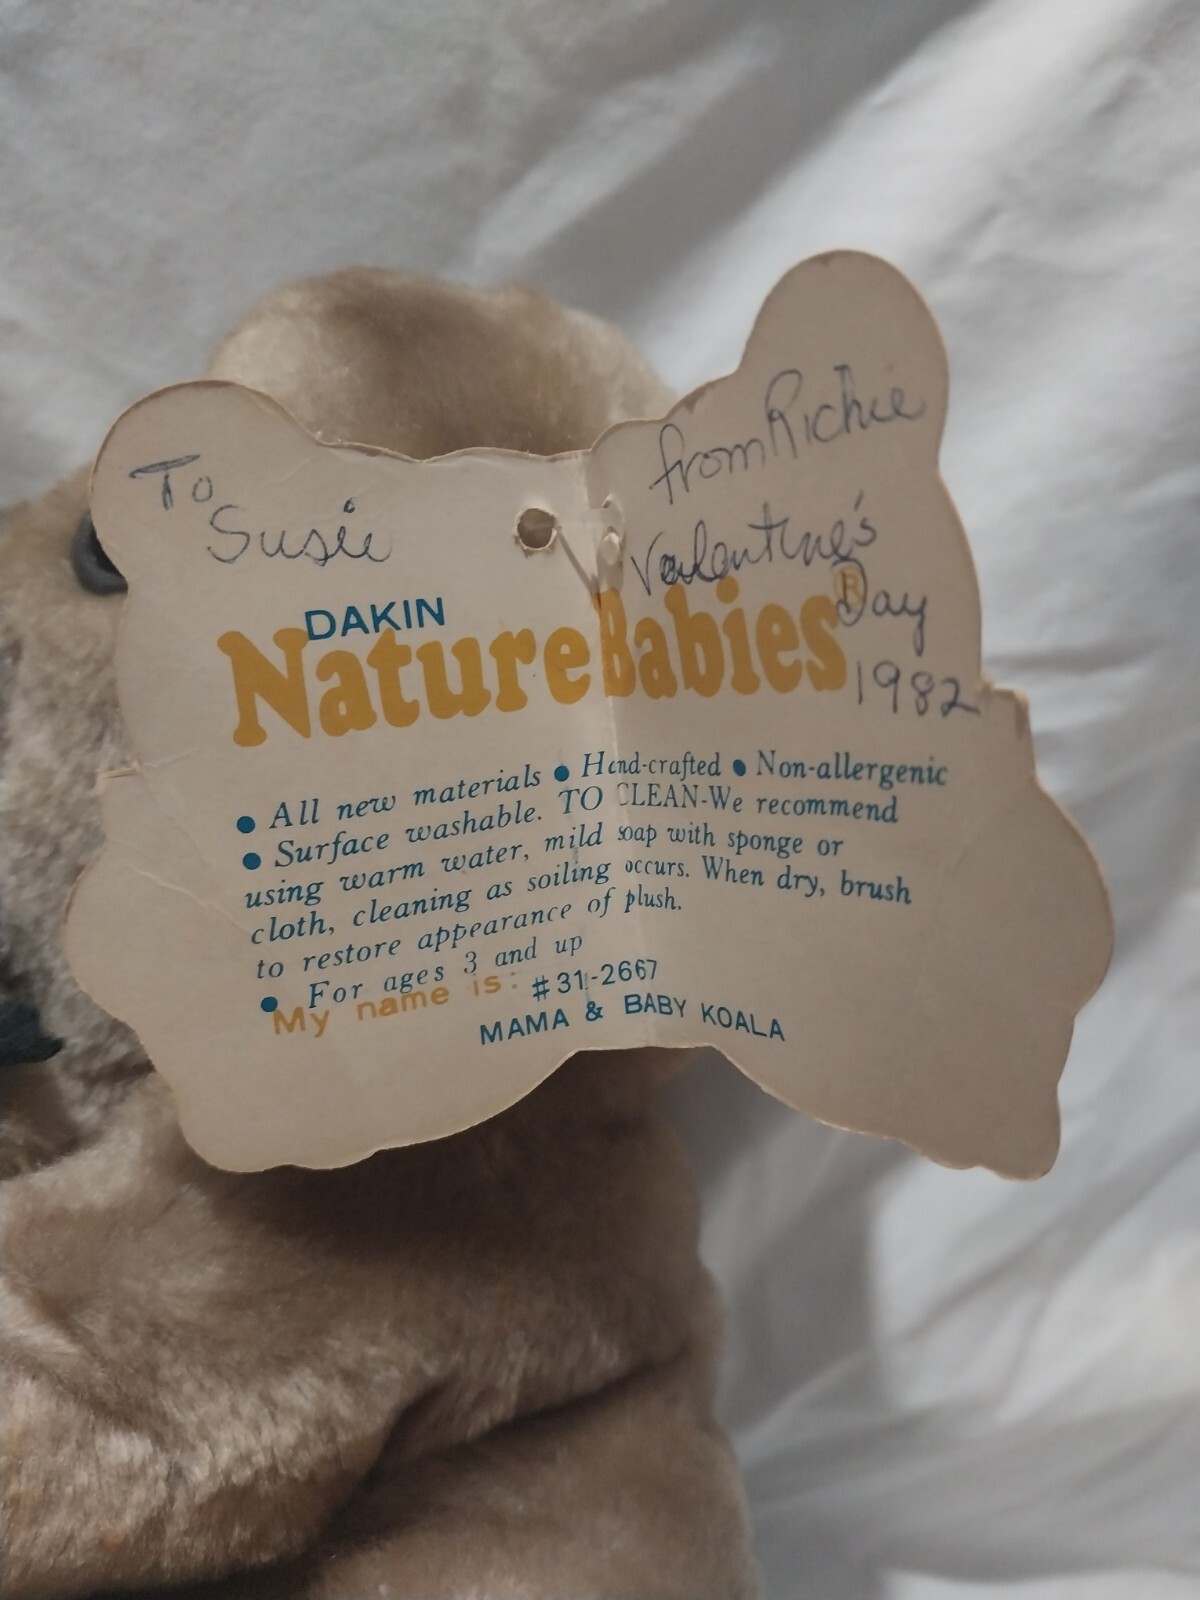 To
Susie
from Richie
Valentine's
Day
1982
DAKIN
NatureBabies®
• All new materials • Hand-crafted • Non-allergenic
• Surface washable. TO CLEAN-We recommend
using warm water, mild soap with sponge or
cloth, cleaning as soiling occurs. When dry, brush
to restore appearance of plush.
• For ages 3 and up
My name is: #31-2667
MAMA & BABY KOALA